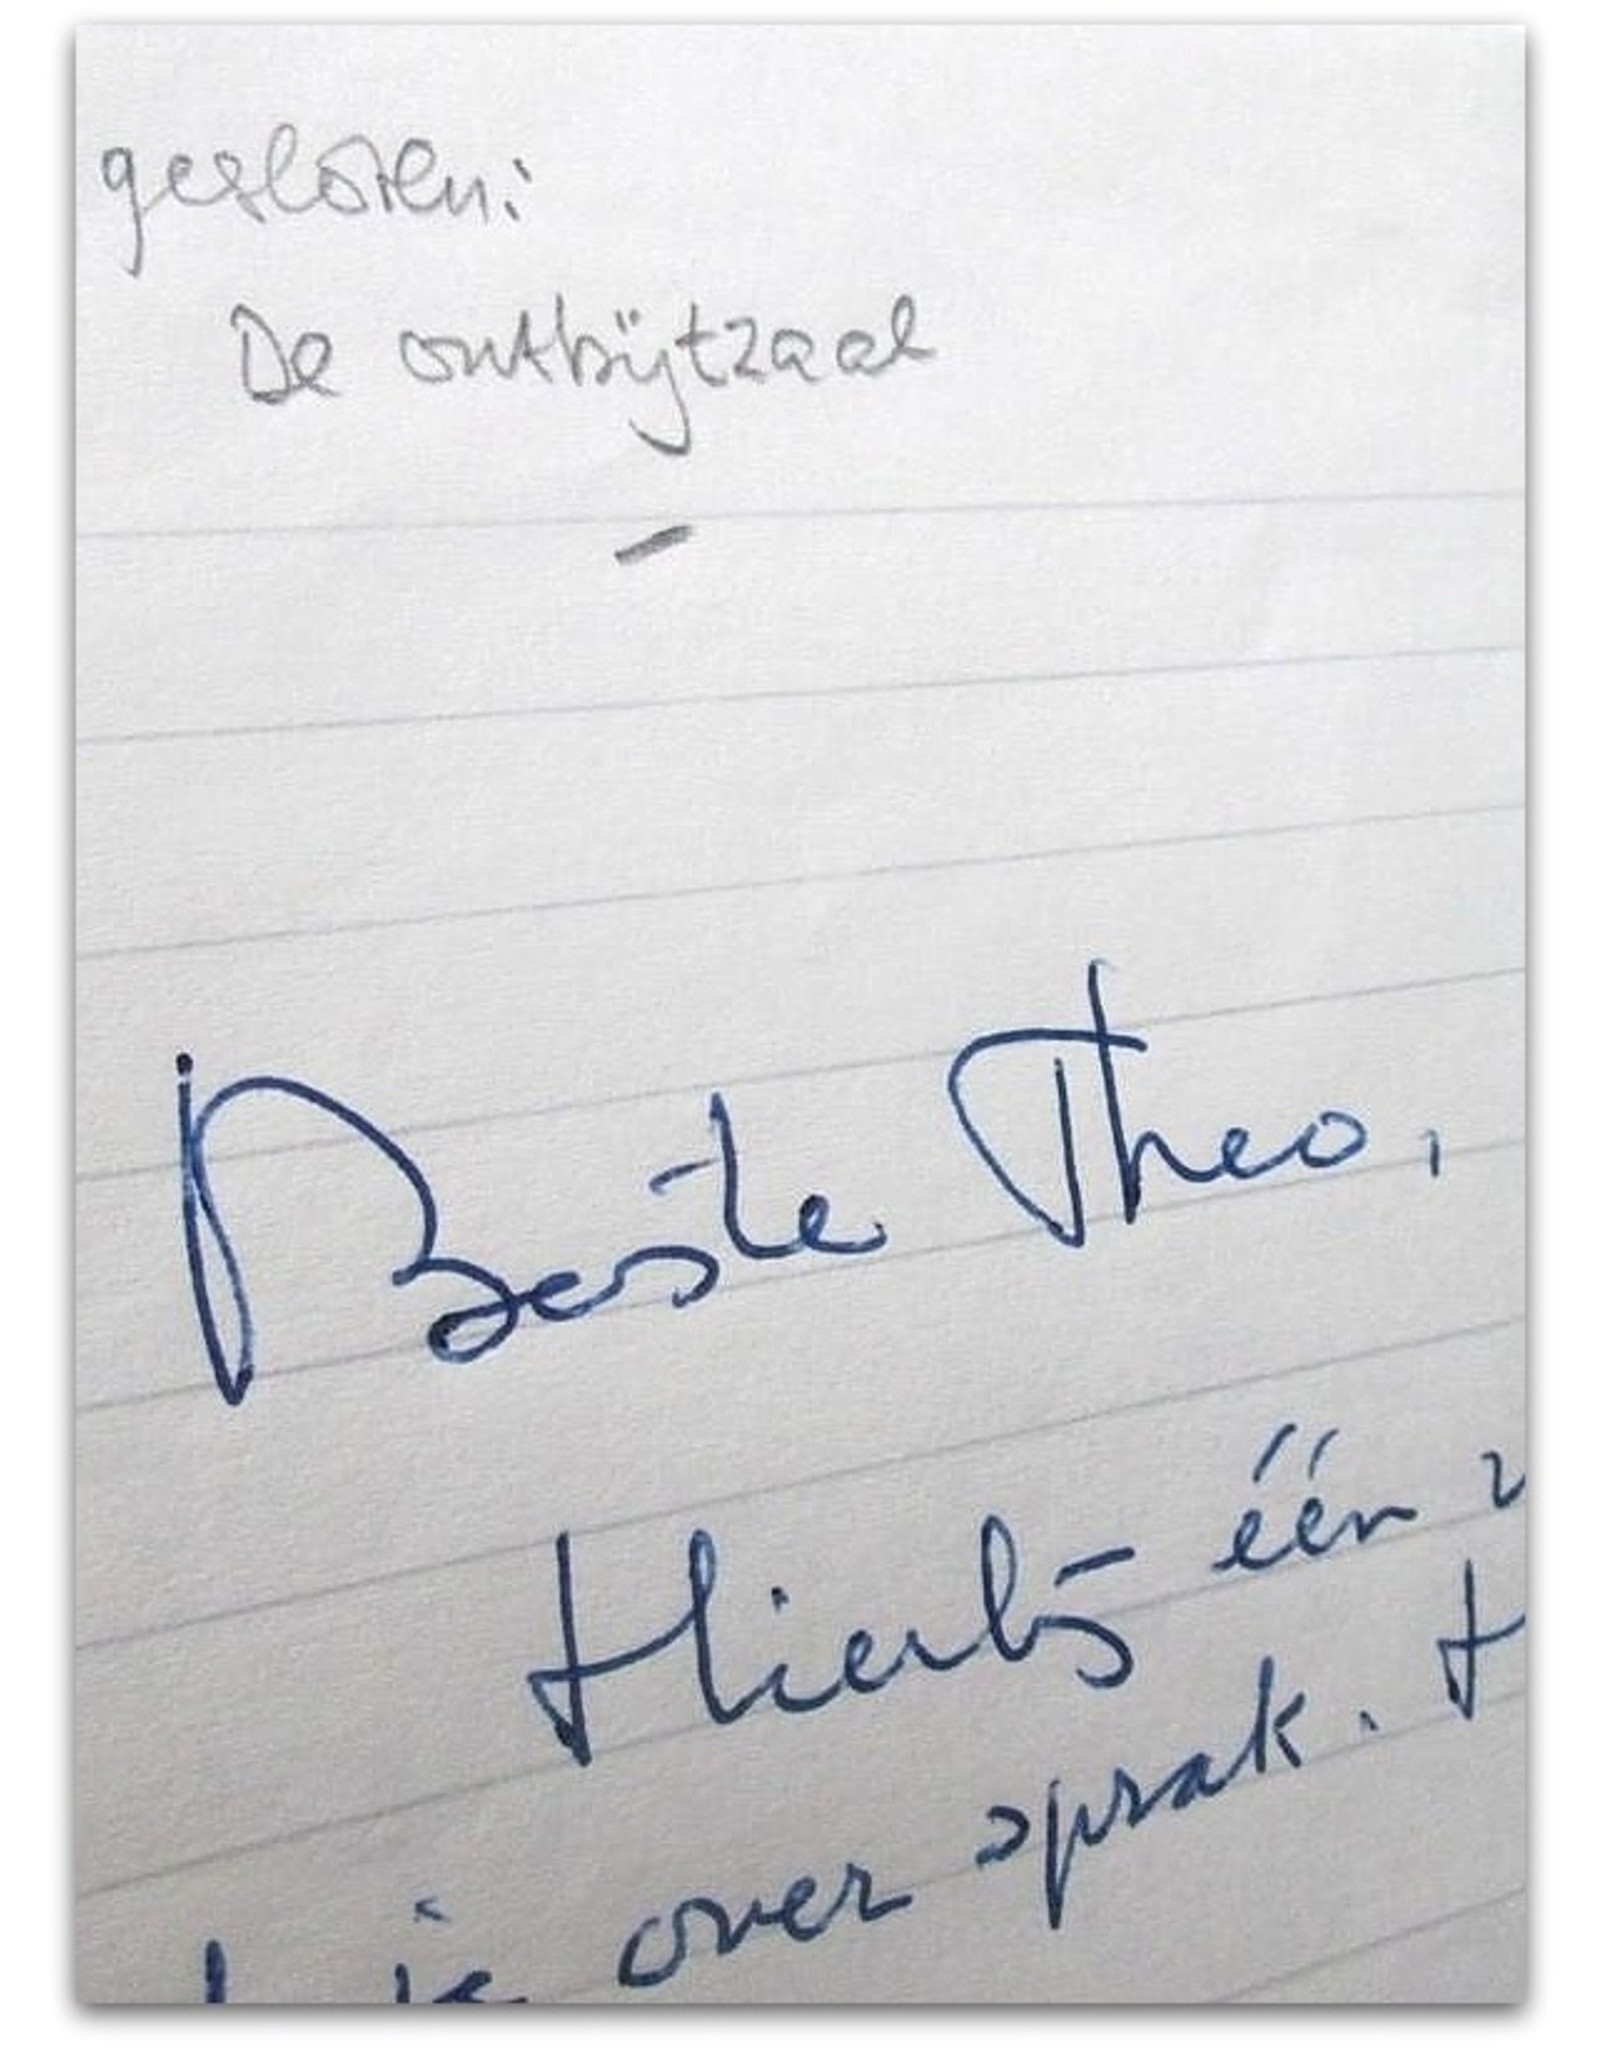 gesloten:
De ontbijtzaal
Beste Theo,
Hierbij één
je over sprak. H